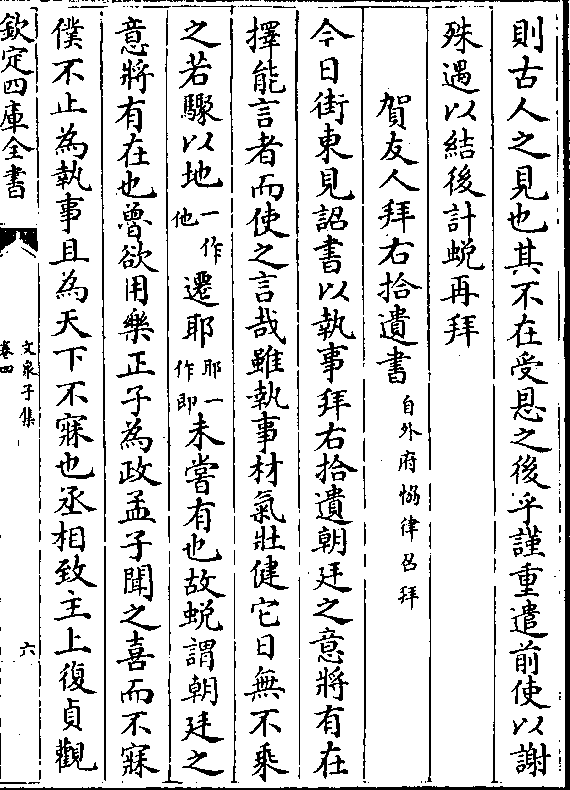 則古人之見也其不在受恩之後乎謹重遣前使以謝
殊遇以結後計蛻再拜
賀友人拜右拾遺書自外府恊律召拜
今日街東見詔書以執事拜右拾遺朝廷之意將有在
擇能言者而使之言哉雖執事材氣壯健它日無不乘
之若驟以地一作他遷耶耶一作即未嘗有也故蛻謂朝廷之
意將有在也魯欲用樂正子為政孟子聞之喜而不寐
僕不止為執事且為天下不寐也丞相致主上復貞觀
欽定四庫全書
文泉子集
卷四
六